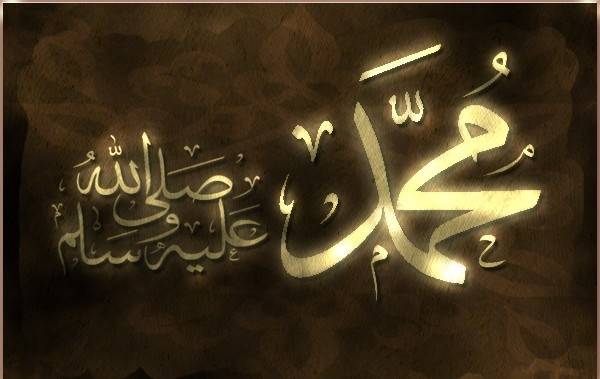 مُحَمَّد
صَلَى الله
عَلَيهِ وسَلم